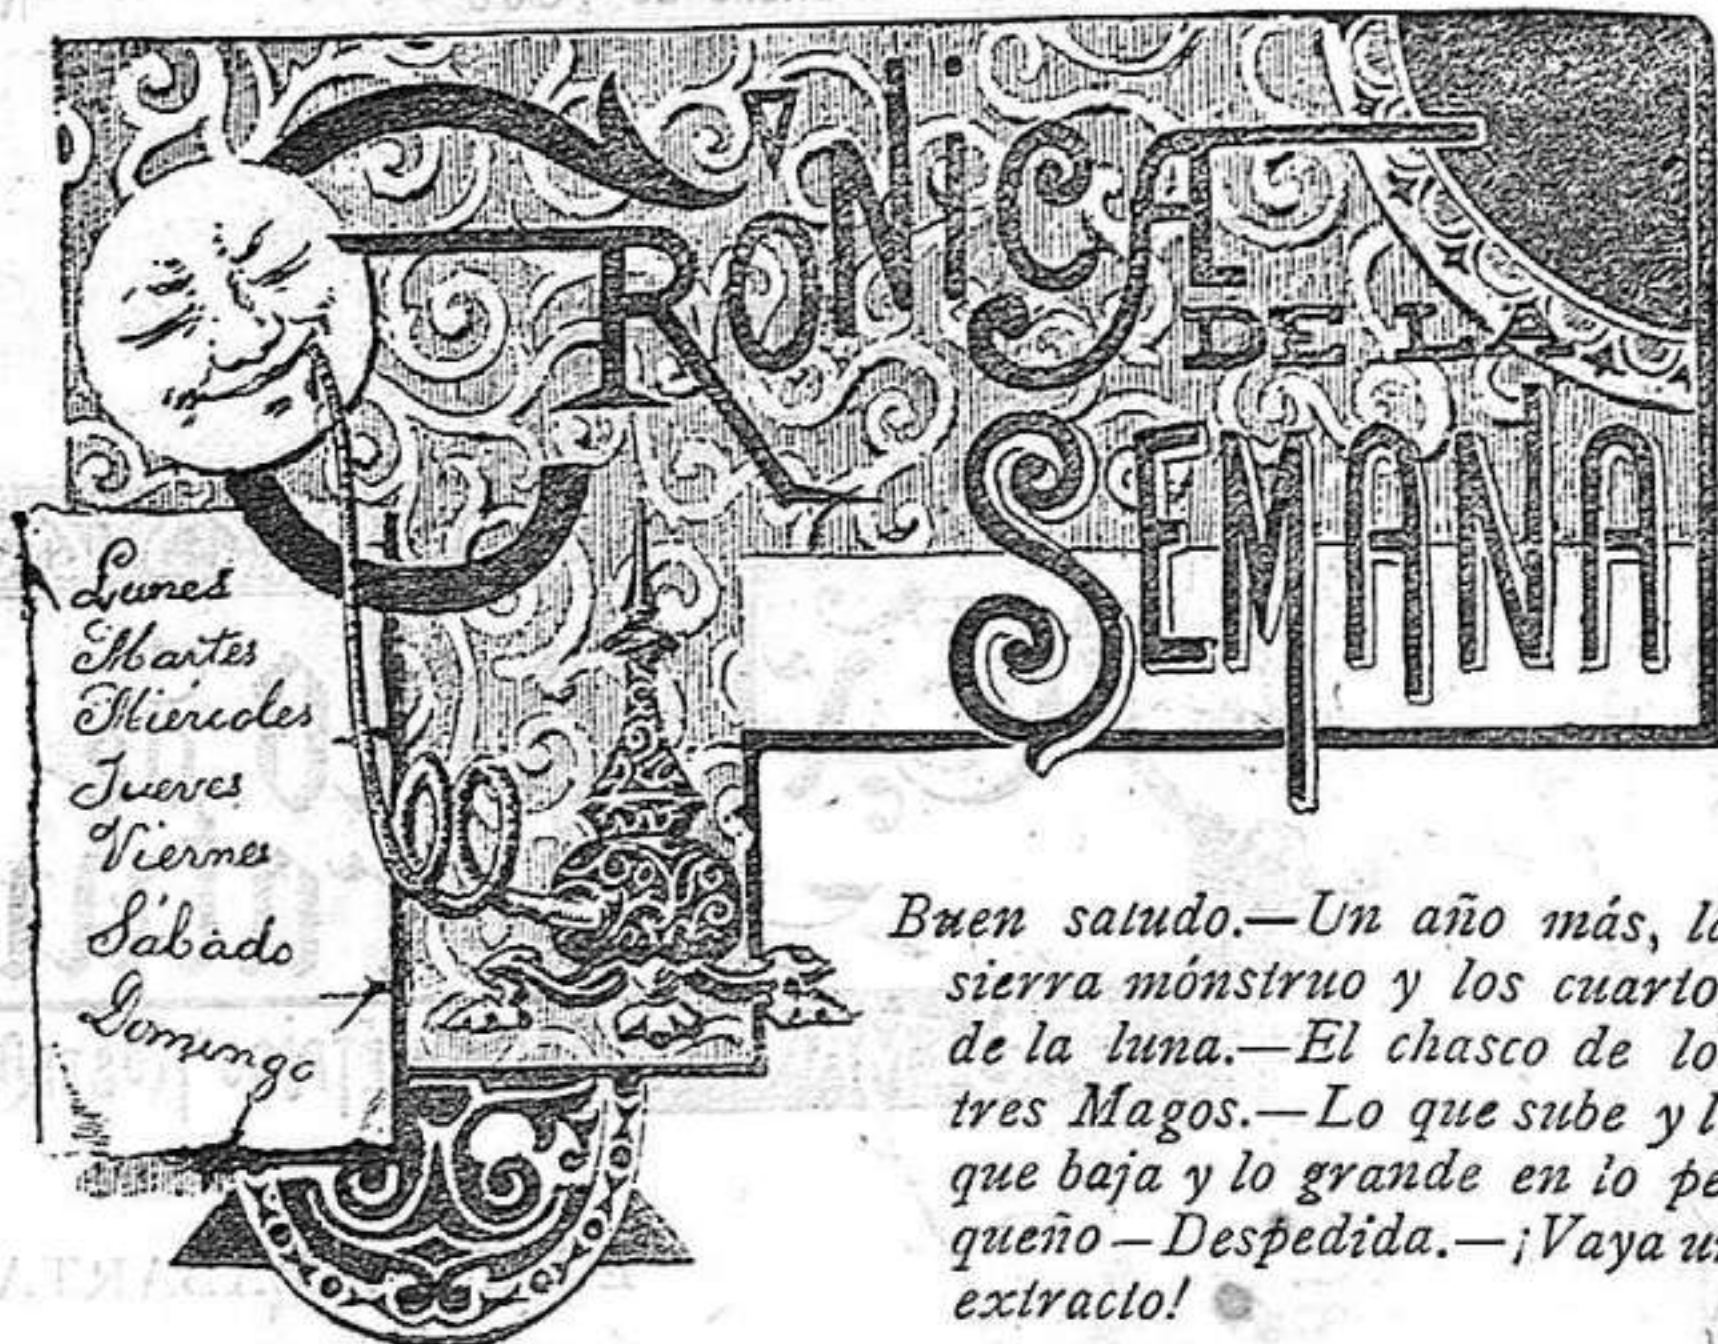 CRÓNICA
DE LA
SEMANA
Lunes
Martes
Miércoles
Jueves
Viernes
Sábado
Domingo
Buen saludo.—Un año más, la
sierra mónstruo y los cuarto
de la luna.—El chasco de lo
tres Magos.—Lo que sube y l
que baja y lo grande en lo pe
queño—Despedida.—¡Vaya un
extracto!